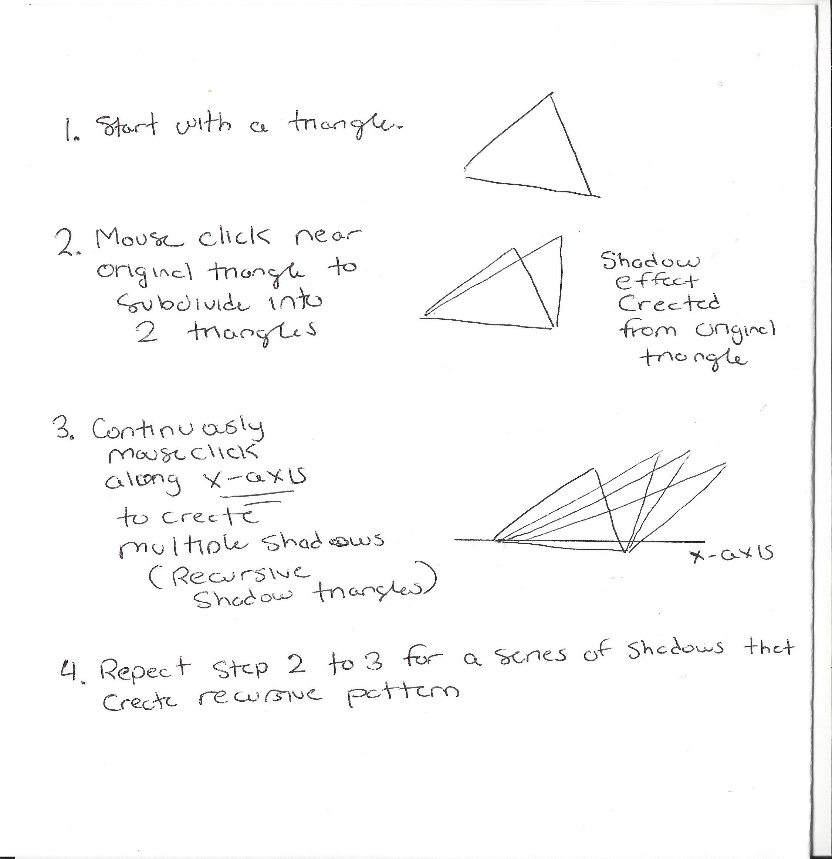 1. Start with a triangle.
2. Mouse click near
original triangle to
subdivide into
2 triangles
Shadow
effect
Created
from original
triangle
3. Continuously
mouse click
along x-axis
to create
multiple shadows
(Recursive
Shadow triangles)
x-axis
4. Repeat Step 2 to 3 for a series of shadows that
Create recursive pattern